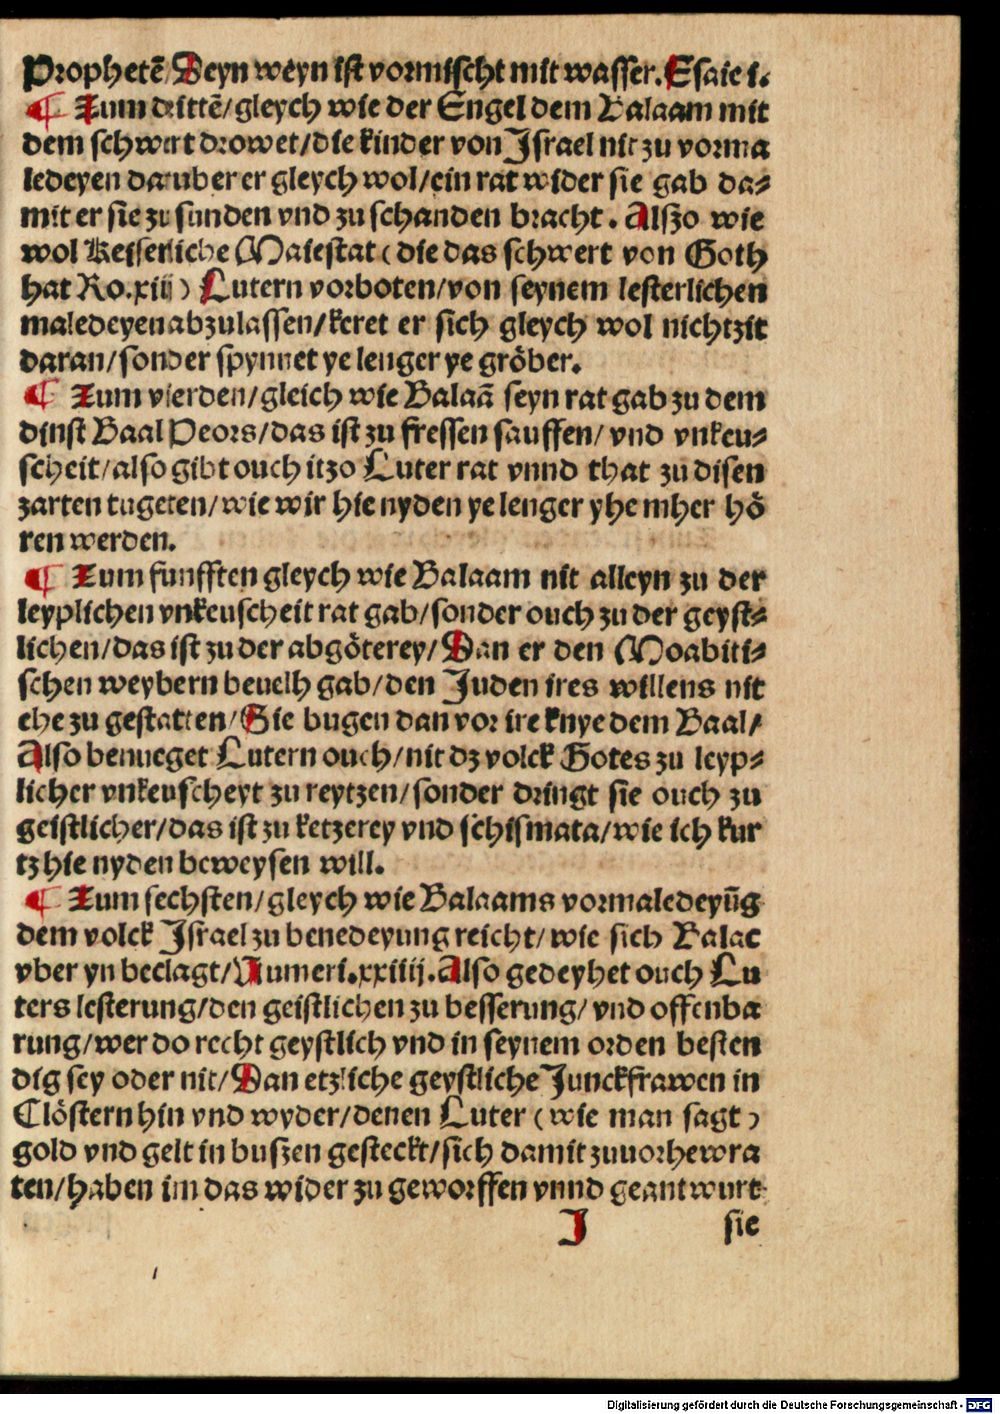 Prophetē/Deyn weyn ist vormischt mit wasser. Esaie i.
¶ Zum drittē/gleych wie der Engel dem Balaam mit
dem schwert drowet/die kinder von Israel nit zu vorma
ledeyen daruber er gleych wol/ein rat wider sie gab da⸗
mit er sie zu sunden vnd zu schanden bracht. Alszo wie
wol Keiserliche Maiestat (die das schwert von Goth
hat Ro.xiij) Lutern vorboten/von seynem lesterlichen
maledeyen abzulassen/keret er sich gleych wol nichtzit
daran/sonder spynnet ye lenger ye gröber.
¶ Zum vierden/gleich wie Balaā seyn rat gab zu dem
dinst Baal Peors/das ist zu fressen sauffen/ vnd vnkeu⸗
scheit/also gibt ouch itzo Luter rat vnnd that zu disen
zarten tugeten/wie wir hie nyden ye lenger yhe mher hö
ren werden.
¶ Zum funfften gleych wie Balaam nit alleyn zu der
leyplichen vnkeuscheit rat gab/sonder ouch zu der geyst⸗
lichen/das ist zu der abgöterey/Dan er den Moabiti⸗
schen weybern beuelh gab/den Juden ires willens nit
ehe zu gestatten/Sie bugen dan vor ire knye dem Baal/
Also benueget Lutern ouch/nit dz volck Gotes zu leyp⸗
licher vnkeuscheyt zu reytzen/sonder dringt sie ouch zu
geistlicher/das ist zu ketzerey vnd schismata/wie ich kur
tz hie nyden beweysen will.
¶ Zum sechsten/gleych wie Balaams vormaledeyūg
dem volck Israel zu benedeyung reicht/wie sich Balac
vber yn beclagt/Numeri.xxiiij.Also gedeyhet ouch Lu
ters lesterung/den geistlichen zu besserung/vnd offenba
rung/wer do recht geystlich vnd in seynem orden besten
dig sey oder nit/Dan etzliche geystliche Junckfrawen in
Clöstern hin vnd wyder/denen Luter (wie man sagt)
gold vnd gelt in buszen gesteckt/sich damit zuuorhewra
ten/haben im das wider zu geworffen vnnd geantwurt
J sie
Digitalisierung gefördert durch die Deutsche Forschungsgemeinschaft - DFG